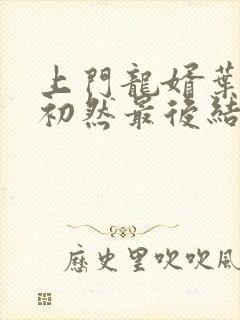 上門龍婿葉
初然最後結
歷史里吹吹風